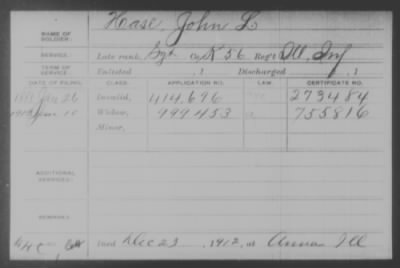 NAME OF SOLDIER: Hase, John L
SERVICE: Late rank, Sgt Co. K 56 Reg't Ill, Inf
TERM OF SERVICE: Enlisted , 1 Discharged , 1
DATE OF FILING. CLASS. APPLICATION NO. CERTIFICATE NO.
Jan 26 Invalid, 414.696 273484
1913 Jan Widow, 999453 755816
Minor,
ADDITIONAL SERVICES:
REMARKS:
Died Dec 23 , 1912, at Anna Ill